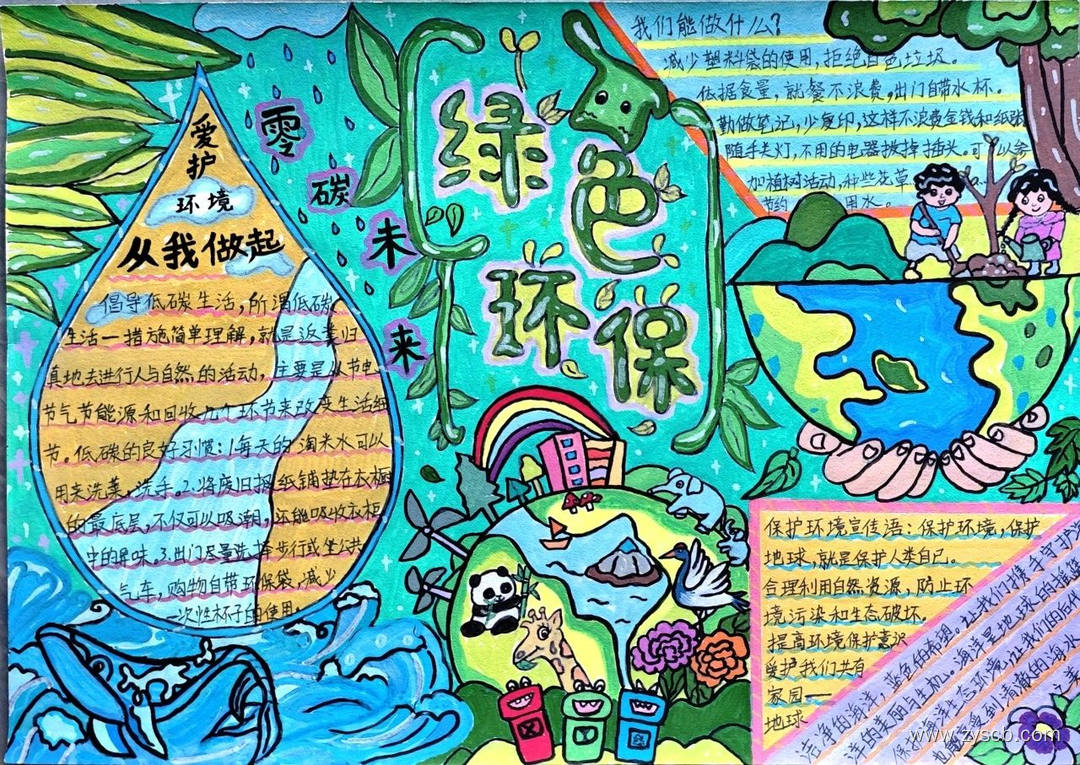 绿色环保
零碳未来
爱护
环境
从我做起
倡导低碳生活，所谓低碳
生活一措施简单理解，就是返璞归
真地去进行人与自然的活动，主要是从节电
节气节能源和回收九个环节来改度生活细
节。低碳的良好习惯：1.每天的淘米水可以
用来洗菜，洗手。2.将废旧报纸铺垫在衣橱
的最底层，不仅可以吸潮，还能吸收衣柜
中的异味。3.出门尽量选择步行或坐公共
气车，购物自带环保袋，减少
一次性杯子的使用。
我们能做什么？
减少塑料袋的使用，拒绝白色垃圾。
依据食量，就餐不浪费，出门自带水杯。
勤做笔记，少复印，这样不浪费金钱和纸张
随手关灯，不用的电器拔掉插头。可以参
加植树活动，种些花草
节约 用水。
保护环境宣传语：保护环境，保护
地球，就是保护人类自己。
合理利用自然资源，防止环
境污染和生态破坏，
提高环境保护意识
爱护我们共有
家园——
地球
让我们携手守护
洁净的海洋，蓝色的希望。
海洋是地球的
洋的美丽与生机。
保 海洋生态环境，让我们的后代
能享受到清澈的海水
www.zyscb.com